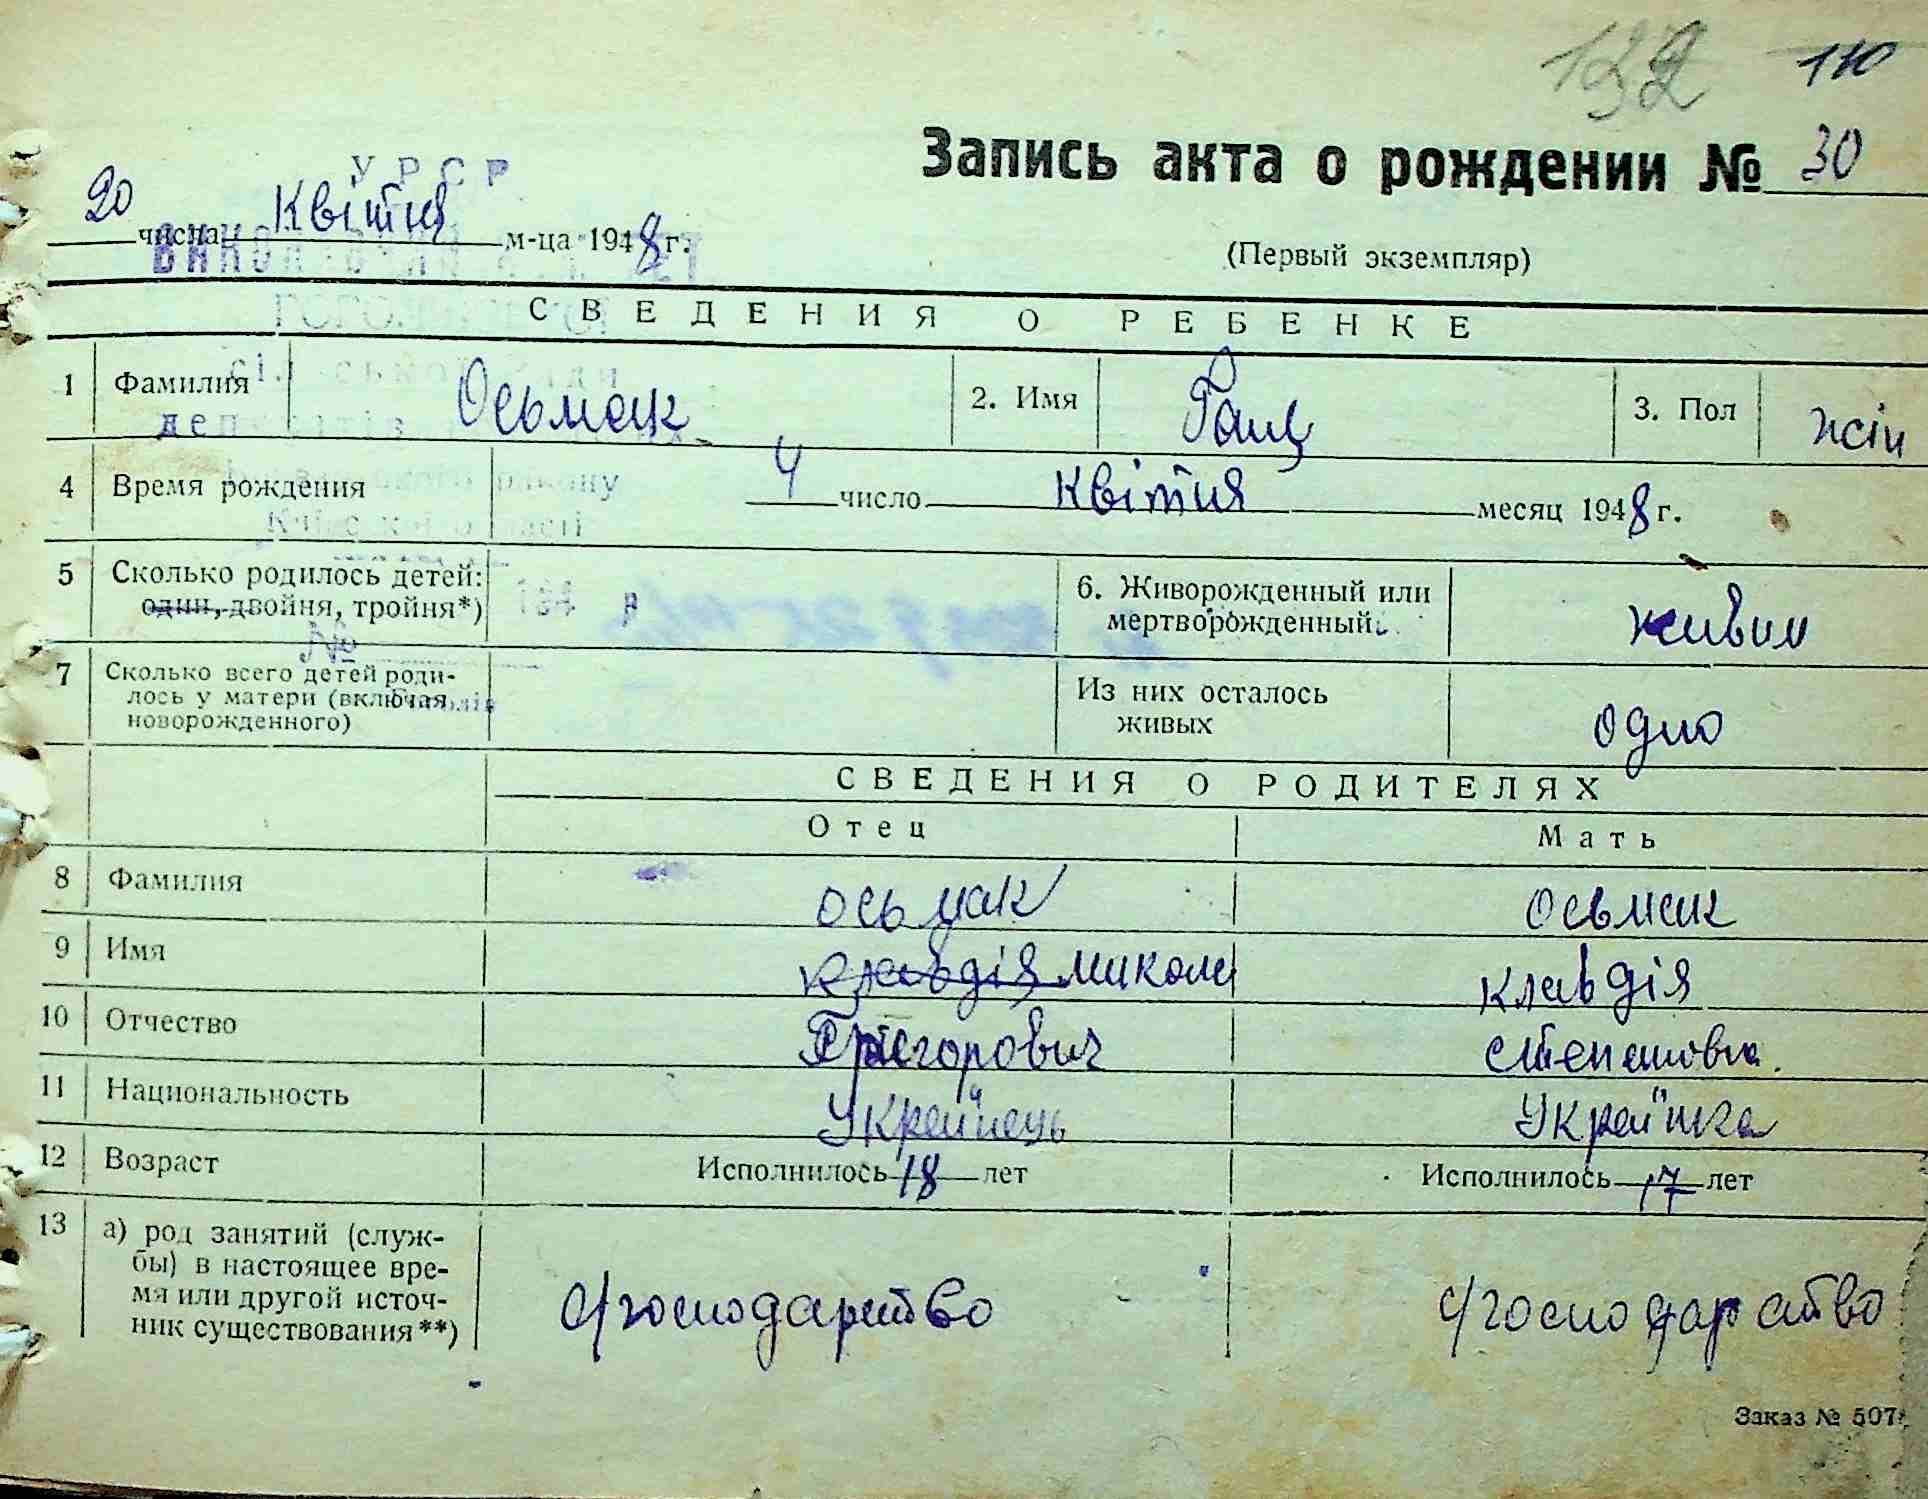 132 110
Запись акта о рождении № 30
УРСР
20 числа Квітня м-ца 1948 г.
(Первый экземпляр)
СВЕДЕНИЯ О РЕБЕНКЕ
1 Фамилия Осьмак 2. Имя 3. Пол жін
4 Время рождения 4 число Квітня месяц 1948 г.
5 Сколько родилось детей: 6. Живорожденный или
один, двойня, тройня*) мертворожденный. живим
№
7 Сколько всего детей роди-
лось у матери (включая
новорожденного) Из них осталось
живых одно
СВЕДЕНИЯ О РОДИТЕЛЯХ
Отец Мать
8 Фамилия Осьмак Осьмак
9 Имя Клавдія Микола Клавдія
10 Отчество Григорович Степановна.
11 Национальность Українець Українка
12 Возраст Исполнилось 18 лет Исполнилось 17 лет
13 а) род занятий (служ-
бы) в настоящее вре-
мя или другой источ-
ник существования**) с/господарство с/господарство
Заказ № 507